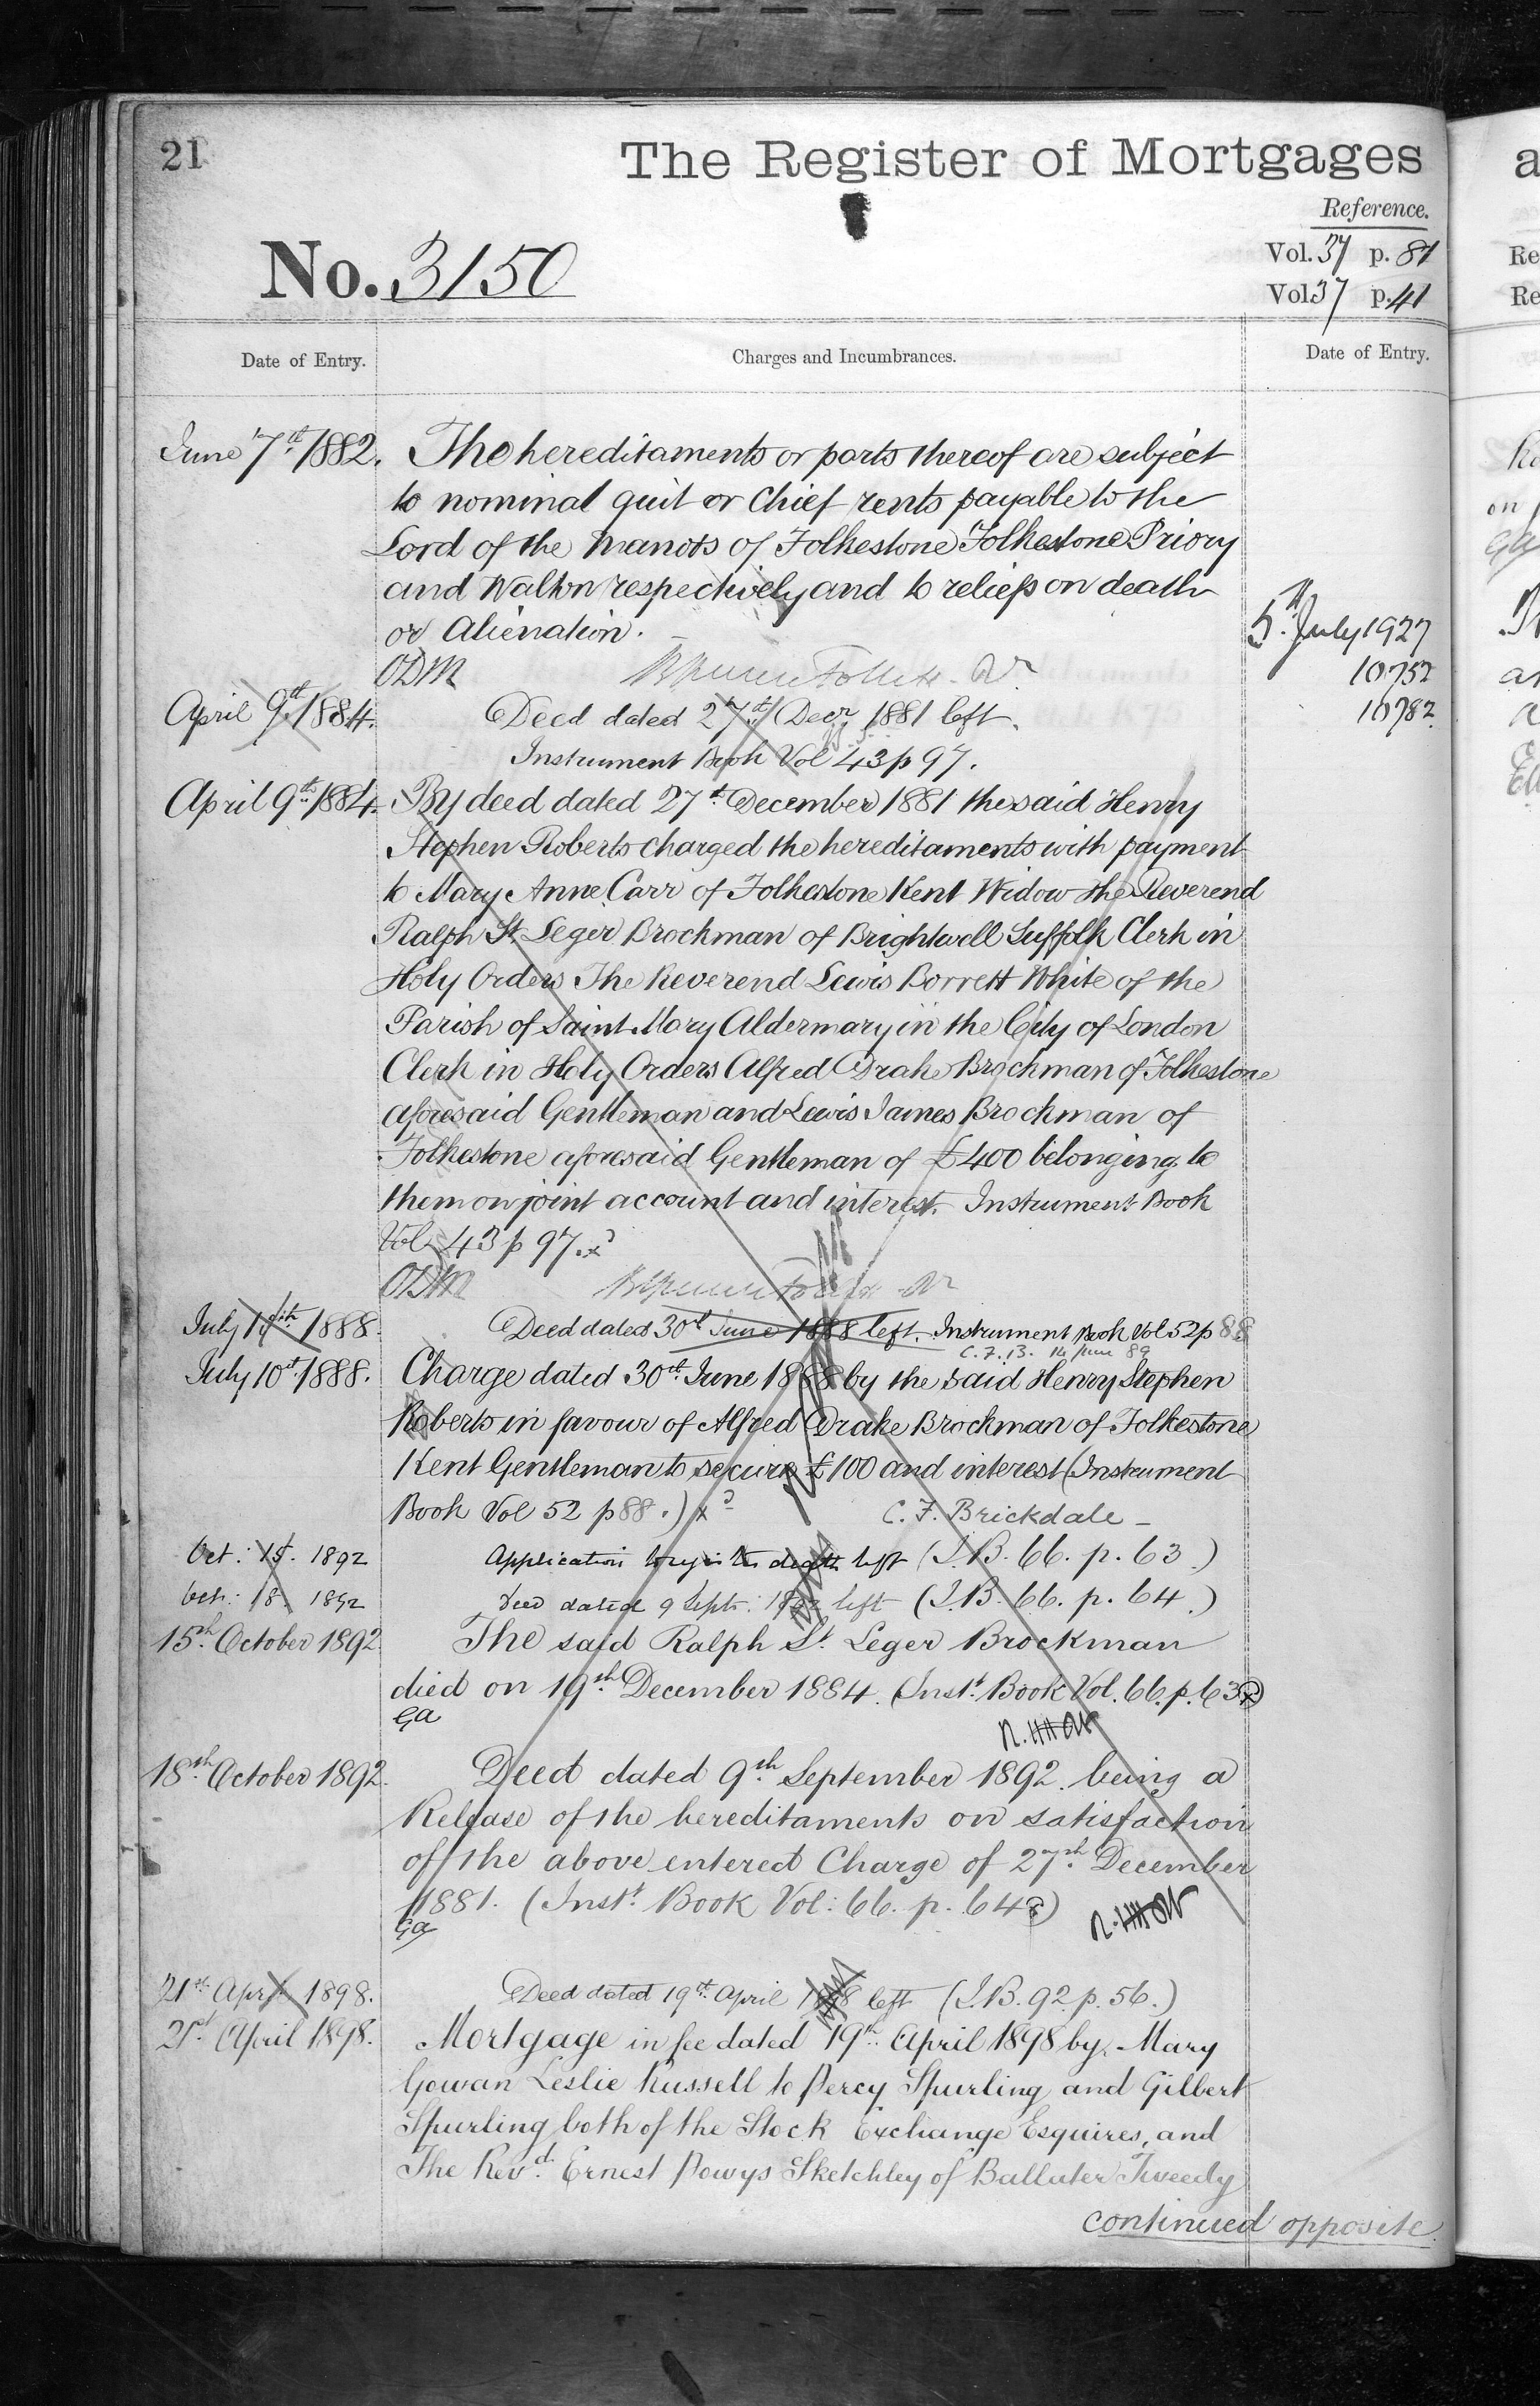 21
The Register of Mortgages
Reference.
No. 3150
Vol. 37 p. 81
Vol 37 p. 41
Date of Entry.
Charges and Incumbrances.
Date of Entry.
June 7th 1882. The hereditaments or parts thereof are subject
to nominal quit or Chief rents payable to the
Lord of the Manors of Folkestone Folkestone Priory
and Walton respectively and to reliefs on death
or Alienation.
ODM
5th July 1927
10752
10782
April 9th 1884. Deed dated 27th Decr 1881 left.
Instrument Book Vol 43 p 97.
April 9th 1884. By deed dated 27th December 1881 the said Henry
Stephen Roberts charged the hereditaments with payment
to Mary Anne Carr of Folkestone Kent Widow The Reverend
Ralph St Leger Brockman of Brightwell Suffolk Clerk in
Holy Orders The Reverend Lewis Borrett White of the
Parish of Saint Mary Aldermary in the City of London
Clerk in Holy Orders Alfred Drake Brockman of Folkestone
aforesaid Gentleman and Lewis James Brockman of
Folkestone aforesaid Gentleman of £400 belonging to
them on joint account and interest. Instrument Book
Vol 43 p 97.
ODM
July 10th 1888. Deed dated 30th June 1888 left. Instrument Book Vol 52 p 88
C.F.B. 14 June 89
July 10th 1888. Charge dated 30th June 1888 by the said Henry Stephen
Roberts in favour of Alfred Drake Brockman of Folkestone
Kent Gentleman to secure £100 and interest (Instrument
Book Vol 52 p 88.) C. F. Brickdale
Oct: 15. 1892 Application to regr. the death left (I.B. 66. p. 63.)
Oct: 18. 1892 Deed dated 9 Sept: 1892 left (I.B. 66. p. 64.)
15th October 1892 The said Ralph St. Leger Brockman
died on 19th December 1884. (Inst. Book Vol. 66. p. 63)
GA
18th October 1892. Deed dated 9th September 1892. being a
Release of the hereditaments on satisfaction
of the above entered Charge of 27th December
1881. (Inst. Book Vol: 66. p. 64)
GA
21st April 1898. Deed dated 19th April 1898 left (I.B. 92 p. 56.)
21st April 1898. Mortgage in fee dated 19th April 1898 by Mary
Gowan Leslie Russell to Percy Spurling and Gilbert
Spurling both of the Stock Exchange Esquires, and
The Revd. Ernest Powys Sketchley of Ballater Tweedy
continued opposite.